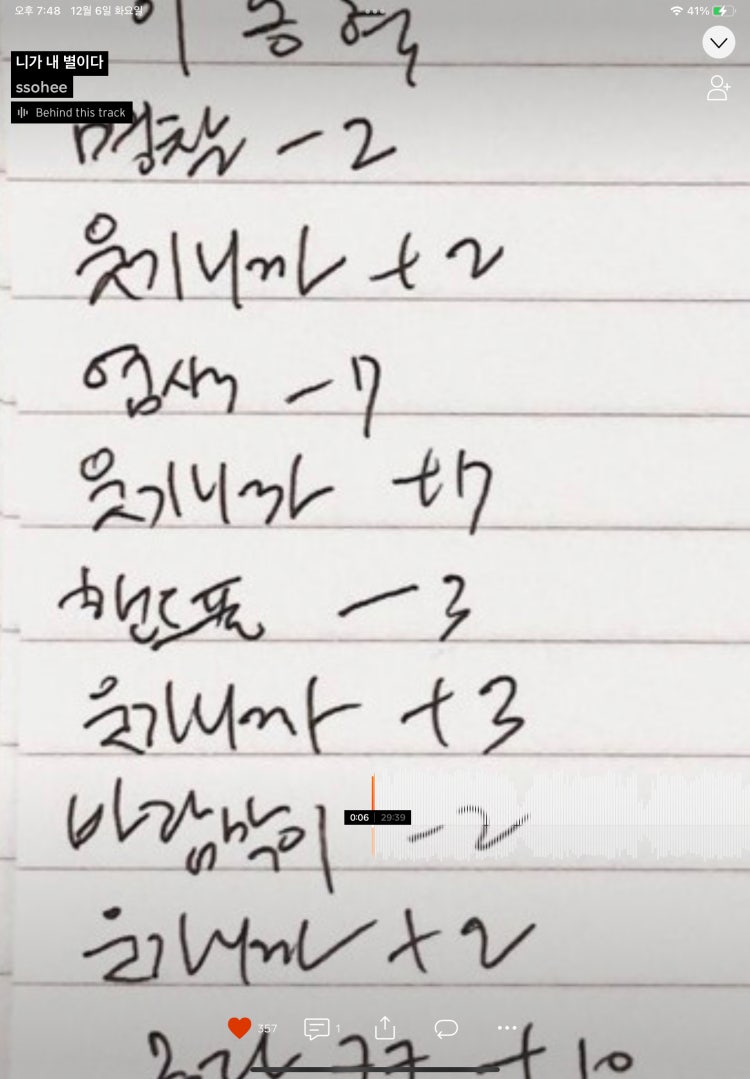 오후 7:48 12월 6일 화요일 41%
이동혁
니가 내 별이다
ssohee
Behind this track
명찰 -2
웃기니까 +2
염색 -7
웃기니까 +7
핸드폰 -3
웃기니까 +3
바람막이 -2
0:06 29:39
웃기니까 +2
357 1
+10